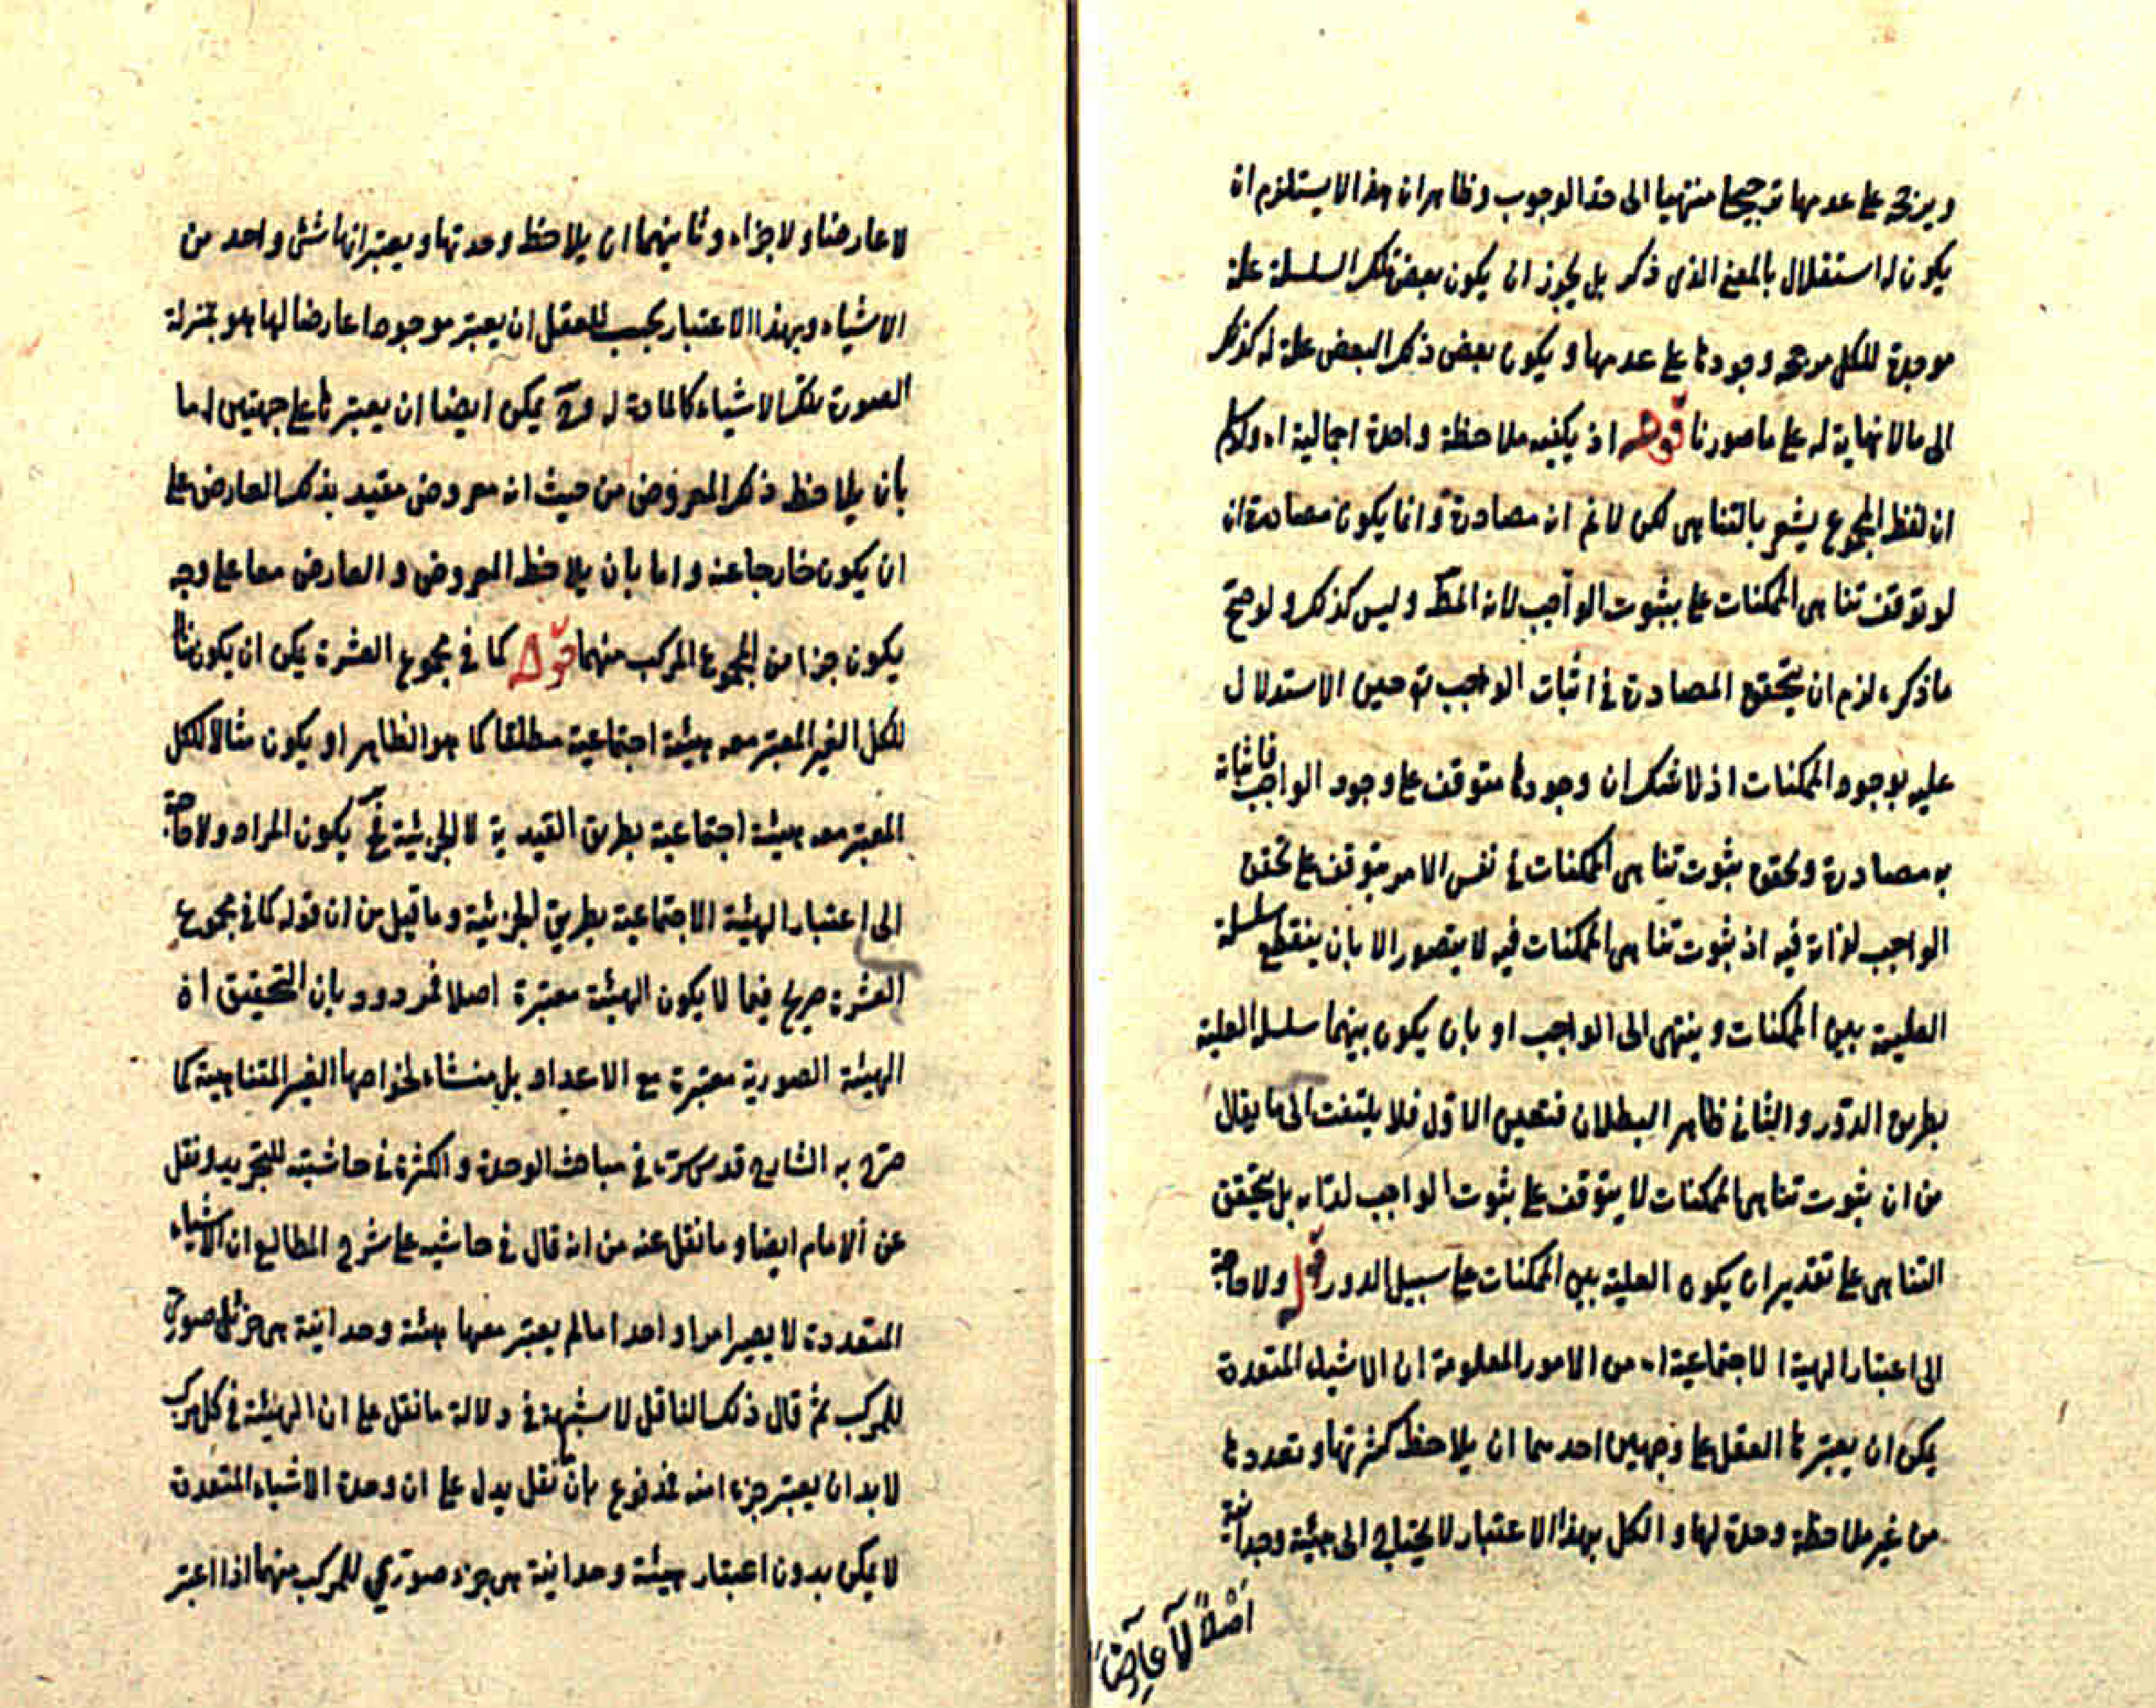 ويرجح على عدمها ترجيحا منتهيا الى حد الوجوب وظاهر ان هذا لا يستلزم ان
يكون له استقلال بالمعنى الذى ذكر بل يجوز ان يكون بعض تلك السلسلة علة
موجدة للكل مرجحة وجودها على عدمها ويكون بعض ذلك البعض علة له كذلك
الى ما لا نهاية له على ما صورنا قوله اذ يكفيه ملاحظة واحدة اجمالية اه
ان لفظ المجموع يشعر بالتناهى لكن لا نم انه مصادرة وانما يكون مصادرة ان
لو توقف تناهى الممكنات على ثبوت الواجب لانه المط وليس كذلك ولو صح
ما ذكره لزم ان يتحقق المصادرة فى اثبات الواجب تع حين الاستدلال
عليه بوجود الممكنات اذ لا شك ان وجودها متوقف على وجود الواجب فاثباته
به مصادرة وتحقق ثبوت تناهى الممكنات فى نفس الامر يتوقف على تحقق
الواجب لذاته فيه اذ ثبوت تناهى الممكنات فيه لا يتصور الا بان ينقطع سلسلة
العلية بين الممكنات وينتهى الى الواجب او بان يكون بينهما سلسلة العلية
بطريق الدور والثانى ظاهر البطلان فتعين الاول فلا يلتفت الى ما يقال
من ان ثبوت تناهى الممكنات لا يتوقف على ثبوت الواجب لذاته بل يتحقق
التناهى على تقدير ان يكون العلية بين الممكنات على سبيل الدور قوله ولا حاجة
الى اعتبار الهيئة الاجتماعية اه من الامور المعلومة ان الاشياء المتعددة
يمكن ان يعتبرها العقل على وجهين احدهما ان يلاحظ كثرتها وتعددها
من غير ملاحظة وحدة لها والكل بهذا الاعتبار لا يحتاج الى هيئة وحدانية
اصلا لا عارضا
لا عارضا ولا جزاء وثانيهما ان يلاحظ وحدتها ويعتبر انها شئ واحد من
الاشياء وبهذا الاعتبار يجب للعقل ان يعتبر موجودا عارضا لها هو بمنزلة
الصورة وتلك الاشياء كالمادة له وح يمكن ايضا ان يعتبرها على جهتين اما
بان يلاحظ ذلك المعروض من حيث انه معروض مقيد بذلك العارض على
ان يكون خارجا عنه واما بان يلاحظ المعروض والعارض معا على وجه
يكون جزا من المجموع المركب منهما قوله كما فى مجموع العشرة يمكن ان يكون مثالا
للكل الغير المعتبر معه هيئة اجتماعية مطلقا كما هو الظاهر او يكون مثالا للكل
المعتبر معه هيئة اجتماعية بطريق القيدية لا الجزئية فح يكون المراد ولا حاجة
الى اعتبار الهيئة الاجتماعية بطريق الجزئية وما قيل من ان قوله كما فى مجموع
العشرة صريح فيما لا يكون الهيئة معتبرة اصلا فمردود بان التحقيق ان
الهيئة الصورية معتبرة مع الاعداد بل منشاء لخواصها الغير المتناهية كما
صرح به الشارح قدس سره فى مباحث الوحدة والكثرة فى حاشيته للتجريد ونقل
عن الامام ايضا وما نقل عنه من انه قال فى حاشيه على شرح المطالع ان الاشياء
المتعددة لا يصير امرا واحدا ما لم يعتبر معها هيئة وحدانية هى جزئ صورى
للمركب ثم قال ذلك الناقل لا شبهة فى دلالة ما نقل على ان الهيئة فى كل مركب
لابد ان يعتبر جزء امنه فمدفوع بان ما نقل يدل على ان وحدة الاشياء المتعددة
لا يمكن بدون اعتبار هيئة وحدانية هى جزء صورى للمركب منهما اذا اعتبر